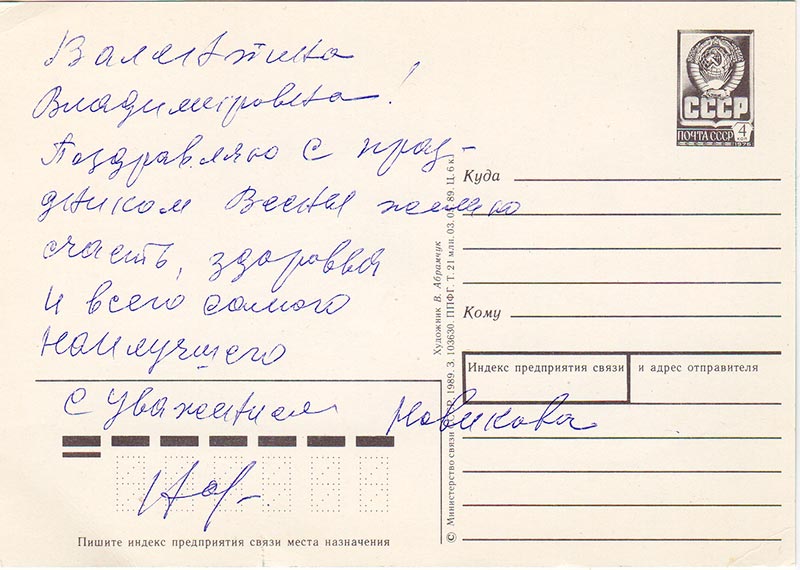 Валентина
Владимировна!
Поздравляю с праз-
дником Весны желаю
счасть, здоровья
и всего самого
наилучшего
с уважением Новикова
СССР
ПОЧТА СССР 4 КОП
1976
Куда
Кому
Индекс предприятия связи и адрес отправителя
Пишите индекс предприятия связи места назначения
Художник В. Абрамчук
© Министерство связи СССР. 1989. З. 103630. ППФГ. Т. 21 млн. 03.03.89. Ц. 6 к.